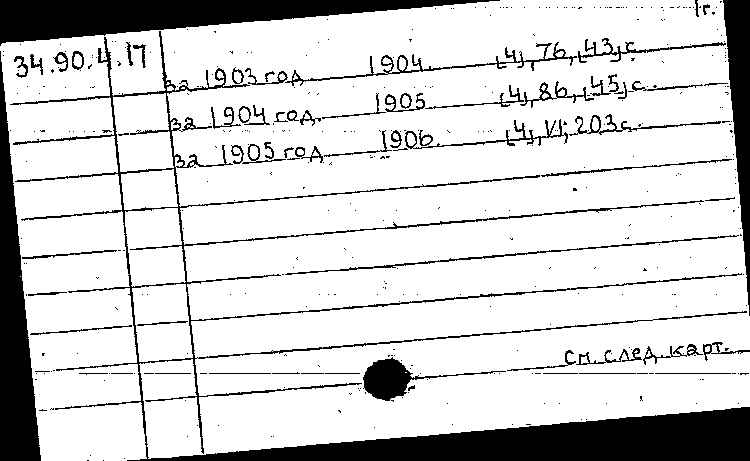 1г.
34.90.4.17
за 1903 год 1904. [4], 76, [43] с.
за 1904 год. 1905. [4], 86, [45] с.
за 1905 год 1906. [4], VI; 203 с.
см. след. карт.